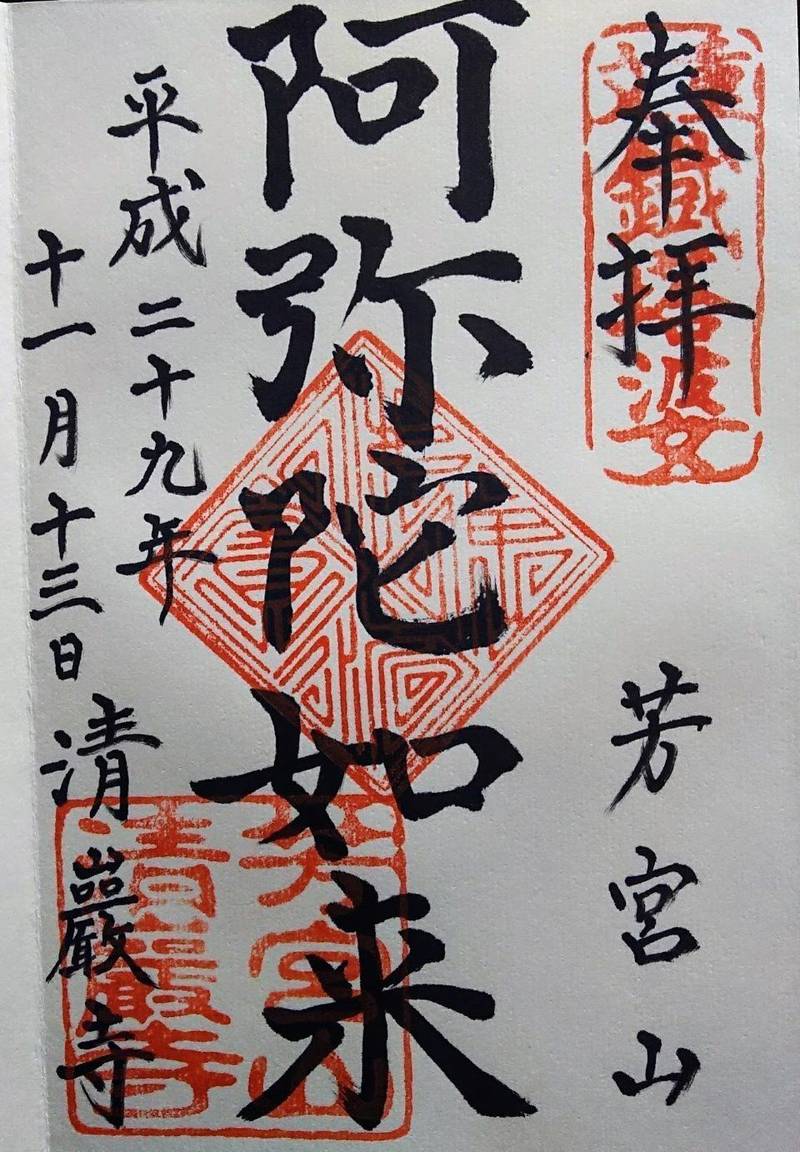 奉拝
芳宮山
阿弥陀如来
平成二十九年
十一月十三日
清巖寺
芳宮山
清巖寺